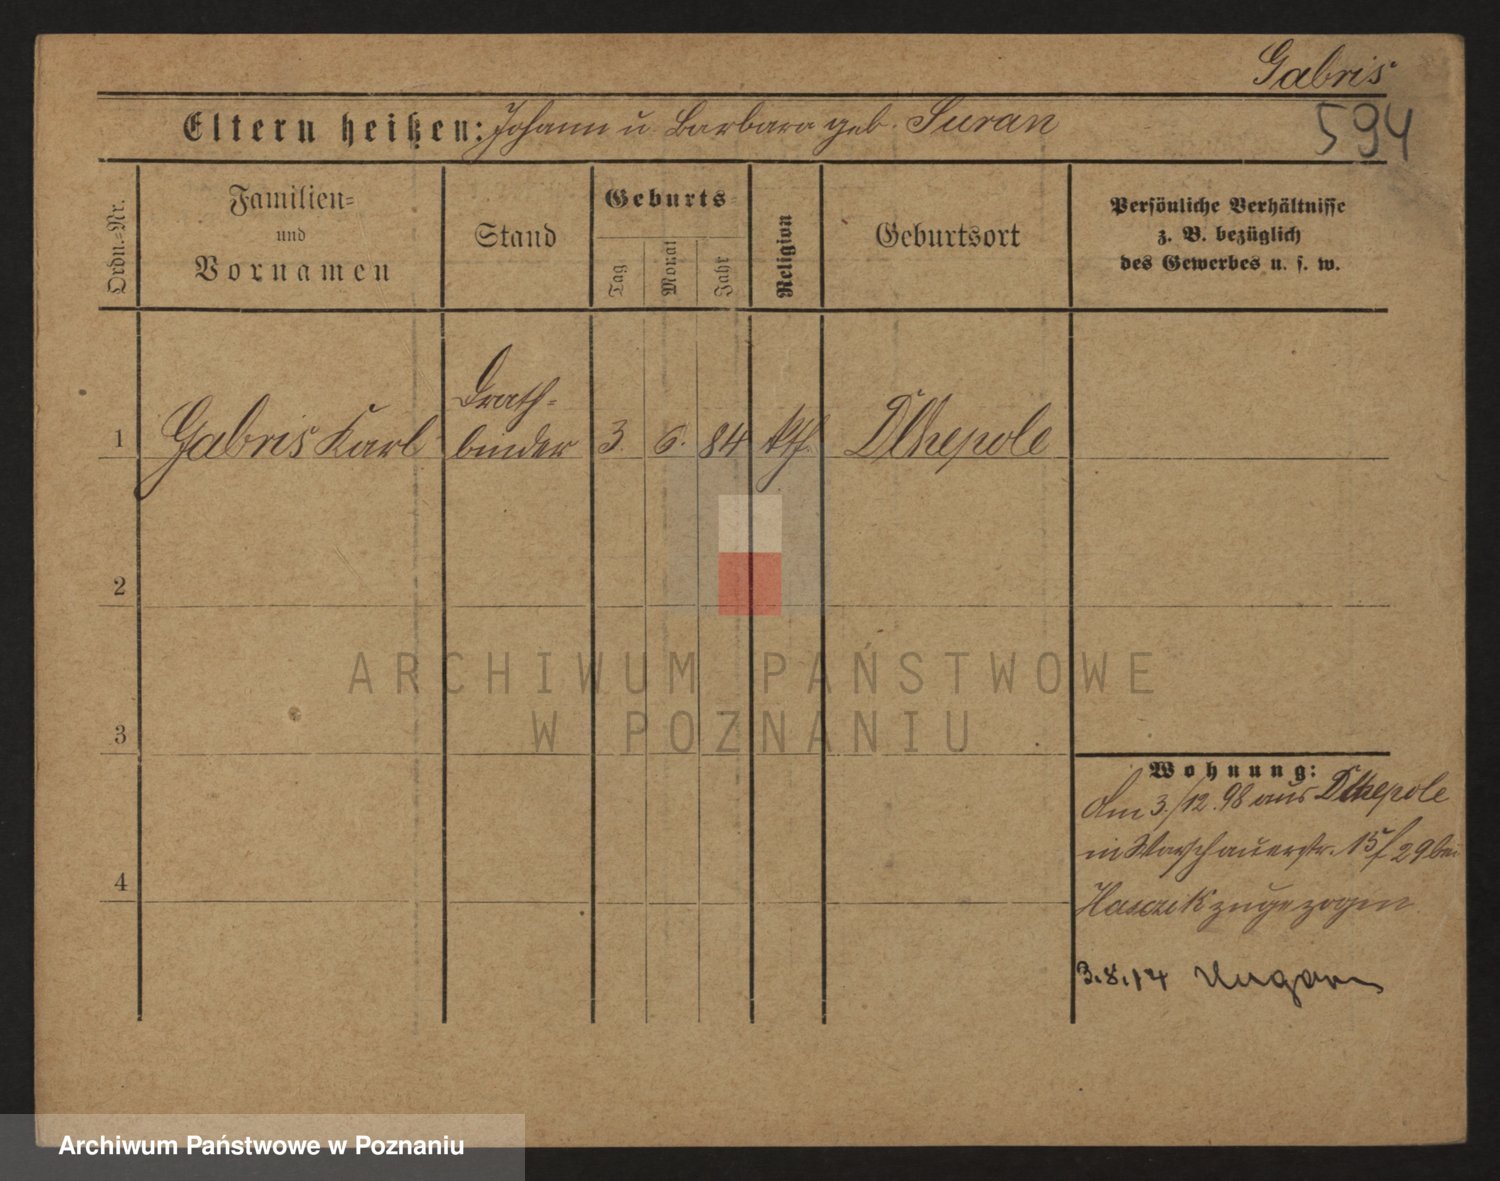 Gabris
594
Eltern heißen: Johann u. Barbara geb. Suran
Ordn.-Nr.
Familien-
und
Vornamen
Stand
Geburts-
Tag
Monat
Jahr
Religion
Geburtsort
Persönliche Verhältnisse
z. B. bezüglich
des Gewerbes u. s. w.
1
Gabris Karl
Drath-
binder
3.
6.
84
kth.
Dlhepole
2
3
4
Wohnung:
Am 3./12.98 aus Dlhepole
in Warschauerstr. 15/29 bei
zugezogen
3.8.14 Ungarn
ARCHIWUM PAŃSTWOWE
W POZNANIU
Archiwum Państwowe w Poznaniu